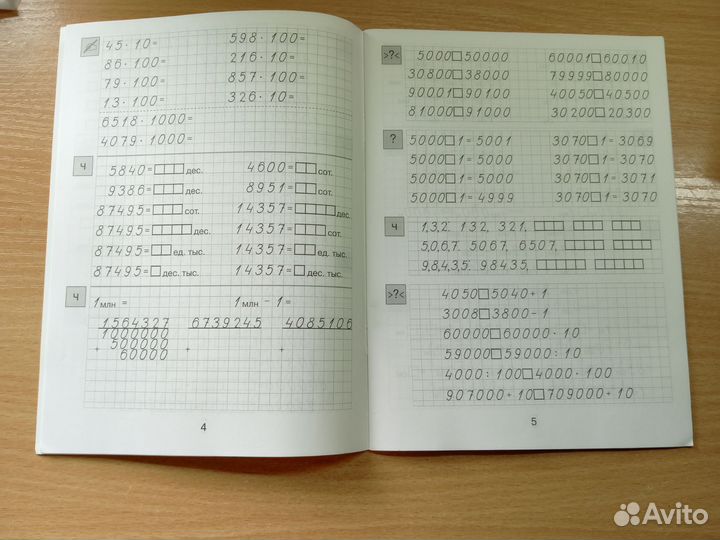 45 · 10=
598 · 100=
86 · 100=
216 · 10=
79 · 100=
857 · 100=
13 · 100=
326 · 10=
6518 · 1000=
4079 · 1000=
Ч
5840= дес.
4600= сот.
9386= дес.
8951= сот.
87495= сот.
14357= дес.
87495= дес.
14357= сот.
87495= ед. тыс.
14357= ед. тыс.
87495= дес. тыс.
14357= дес. тыс.
Ч
1 млн =
1 млн - 1=
1564327
6739245
4085106
1000000
500000
+ + +
60000
4
>?<
5000□50000
60001□60010
30800□38000
79999□80000
90001□90100
40050□40500
81000□91000
30200□20300
?
5000□1=5001
3070□1=3069
5000□1=5000
3070□1=3070
5000□1=5000
3070□1=3071
5000□1=4999
3070□1=3070
Ч
1,3,2. 132, 321,
5,0,6,7. 5067, 6507,
9,8,4,3,5. 98435,
>?<
4050□5040+1
3008□3800-1
60000□60000 · 10
59000□59000 : 10
4000 : 100□4000 · 100
907000 + 10□709000 + 10
5
Avito